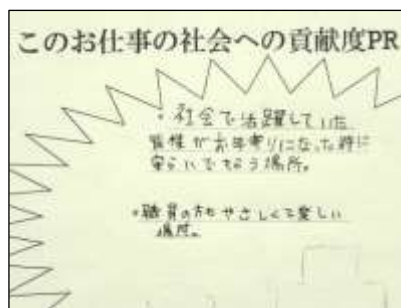 このお仕事の社会への貢献度PR
・社会で活躍していた
皆様がお年寄りになった時に
安らいでもらう場所。
・職員の方もやさしくて楽しい
場所。